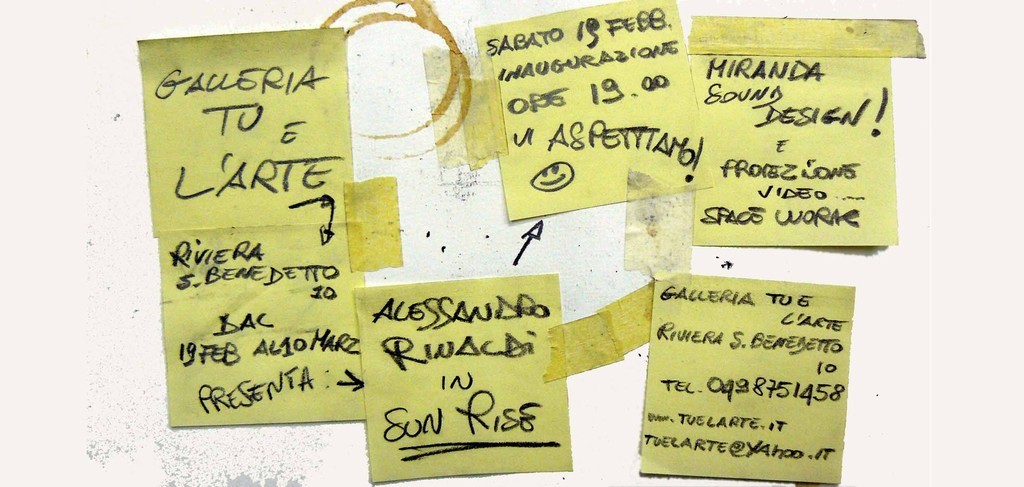 GALLERIA
TU E
L'ARTE
RIVIERA
S. BENEDETTO
10
DAL
19 FEB AL 10 MARZ
PRESENTA:
ALESSANDRO
RINALDI
IN
SUN RISE
SABATO 19 FEBB.
INAUGURAZIONE
ORE 19.00
VI ASPETTIAMO!
MIRANDA
SOUND
DESIGN!
E
PROIEZIONE
VIDEO....
SPACE WORK
GALLERIA TU E
L'ARTE
RIVIERA S. BENEDETTO
10
TEL. 0498751458
www.TUELARTE.IT
TUELARTE@YAHOO.IT